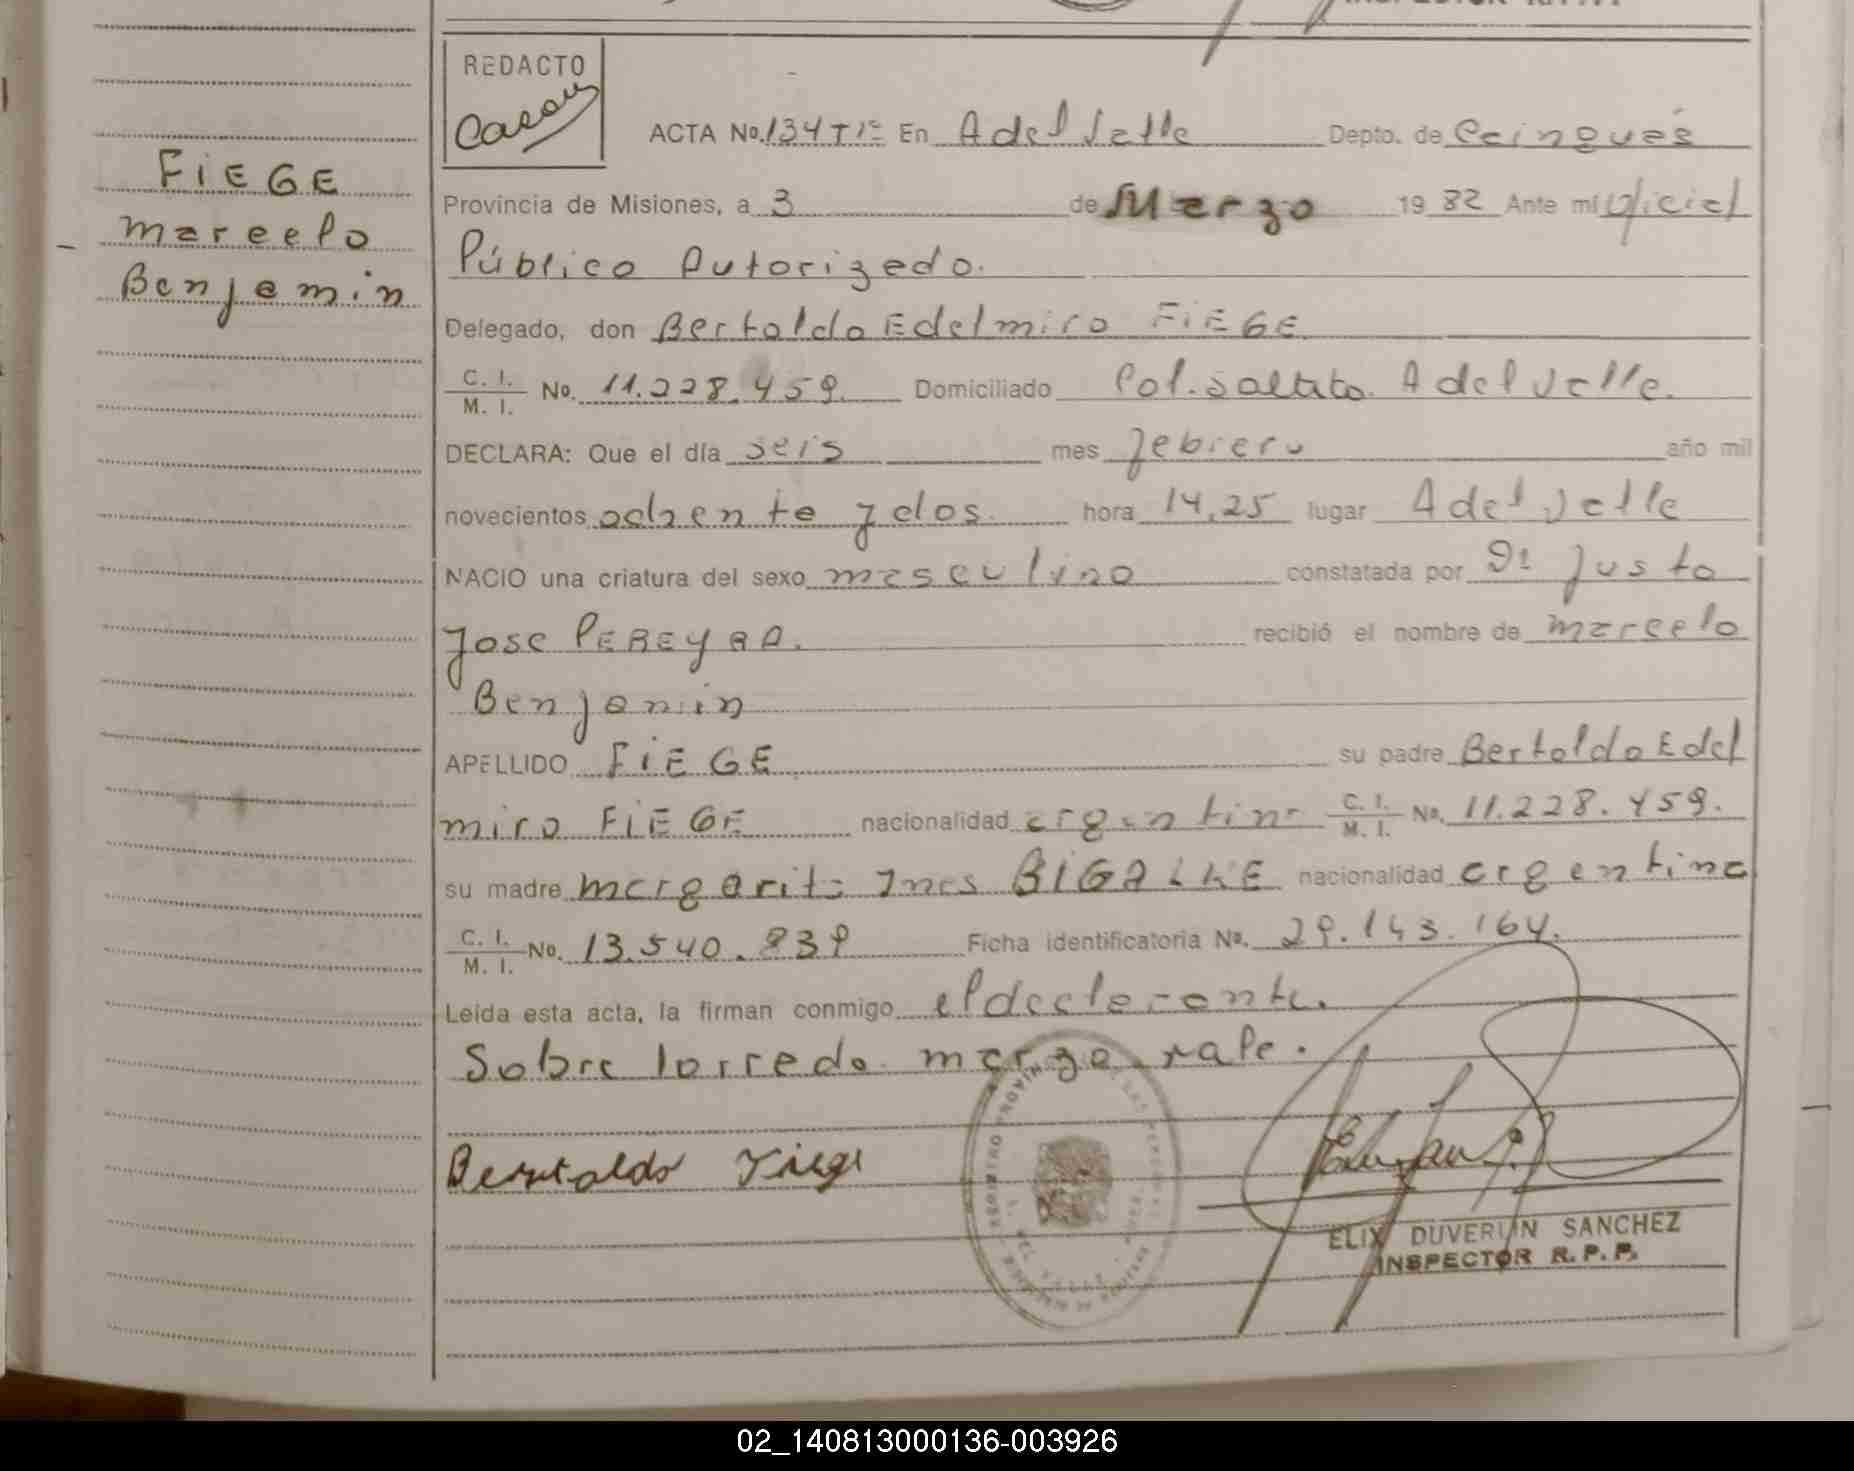 REDACTO
ACTA No. 134 T1º En A del Valle Depto. de Cainguás
FiEGE
Provincia de Misiones, a 3 de Marzo 1982 Ante mi Oficial
Marcelo
Público Autorizado.
Benjamin
Delegado, don Bertoldo Edelmiro FiEGE
C. I.
M. I. No. 11.228.459. Domiciliado Col. Saltito. A del Valle.
DECLARA: Que el día seis mes febrero año mil
novecientos ochente y dos. hora 14,25 lugar A del Valle
NACIO una criatura del sexo masculino constatada por Dr Justo
Jose PEREYRA. recibió el nombre de Marcelo
Benjamin
APELLIDO FiEGE su padre Bertoldo Edel
miro FiEGE nacionalidad argentina C. I.
M. I. No. 11.228.459.
su madre Margarita Ines BIGALKE nacionalidad argentina
C. I.
M. I. No. 13.540.839 Ficha identificatoria No. 29.143.164.
Leida esta acta, la firman conmigo el declarante.
Sobre borrado. marzo. vale.
Bertoldo Fiege
ELIX DUVERLIN SANCHEZ
INSPECTOR R.P.P.
02_140813000136-003926